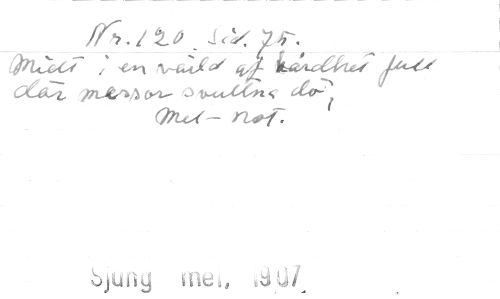 Nr. 120. Sid. 75.
Midt i en värld af hårdhet full
där massor svultna dö,
Mel-not.
Sjung mei, 1907